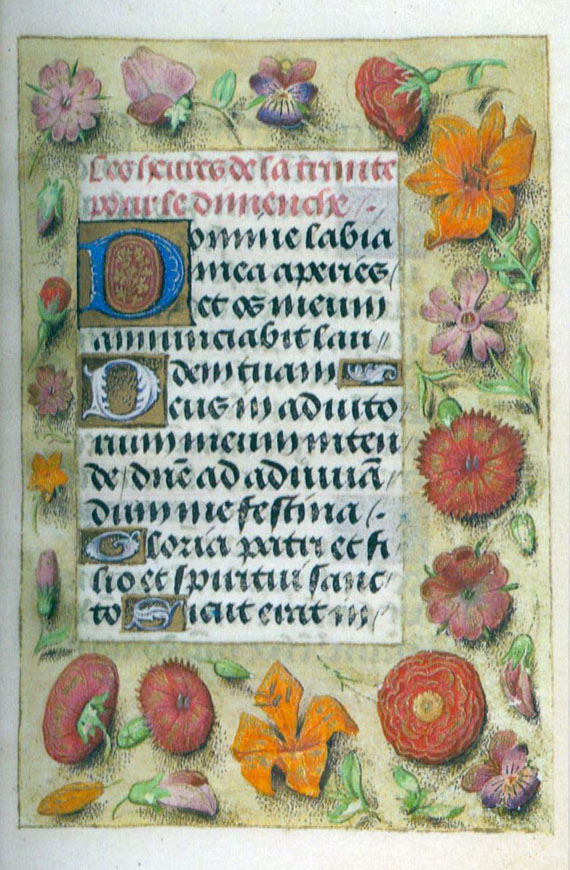 Les heures de la trinite
pour le dimenche
Domine labia
mea aperies
et os meum
annunciabit lau
dem tuam
Deus in adiuto
rium meum inten
de dñe ad adiuuā
dum me festina
Gloria patri et fi
lio et spiritui sanc
to Sicut erat in